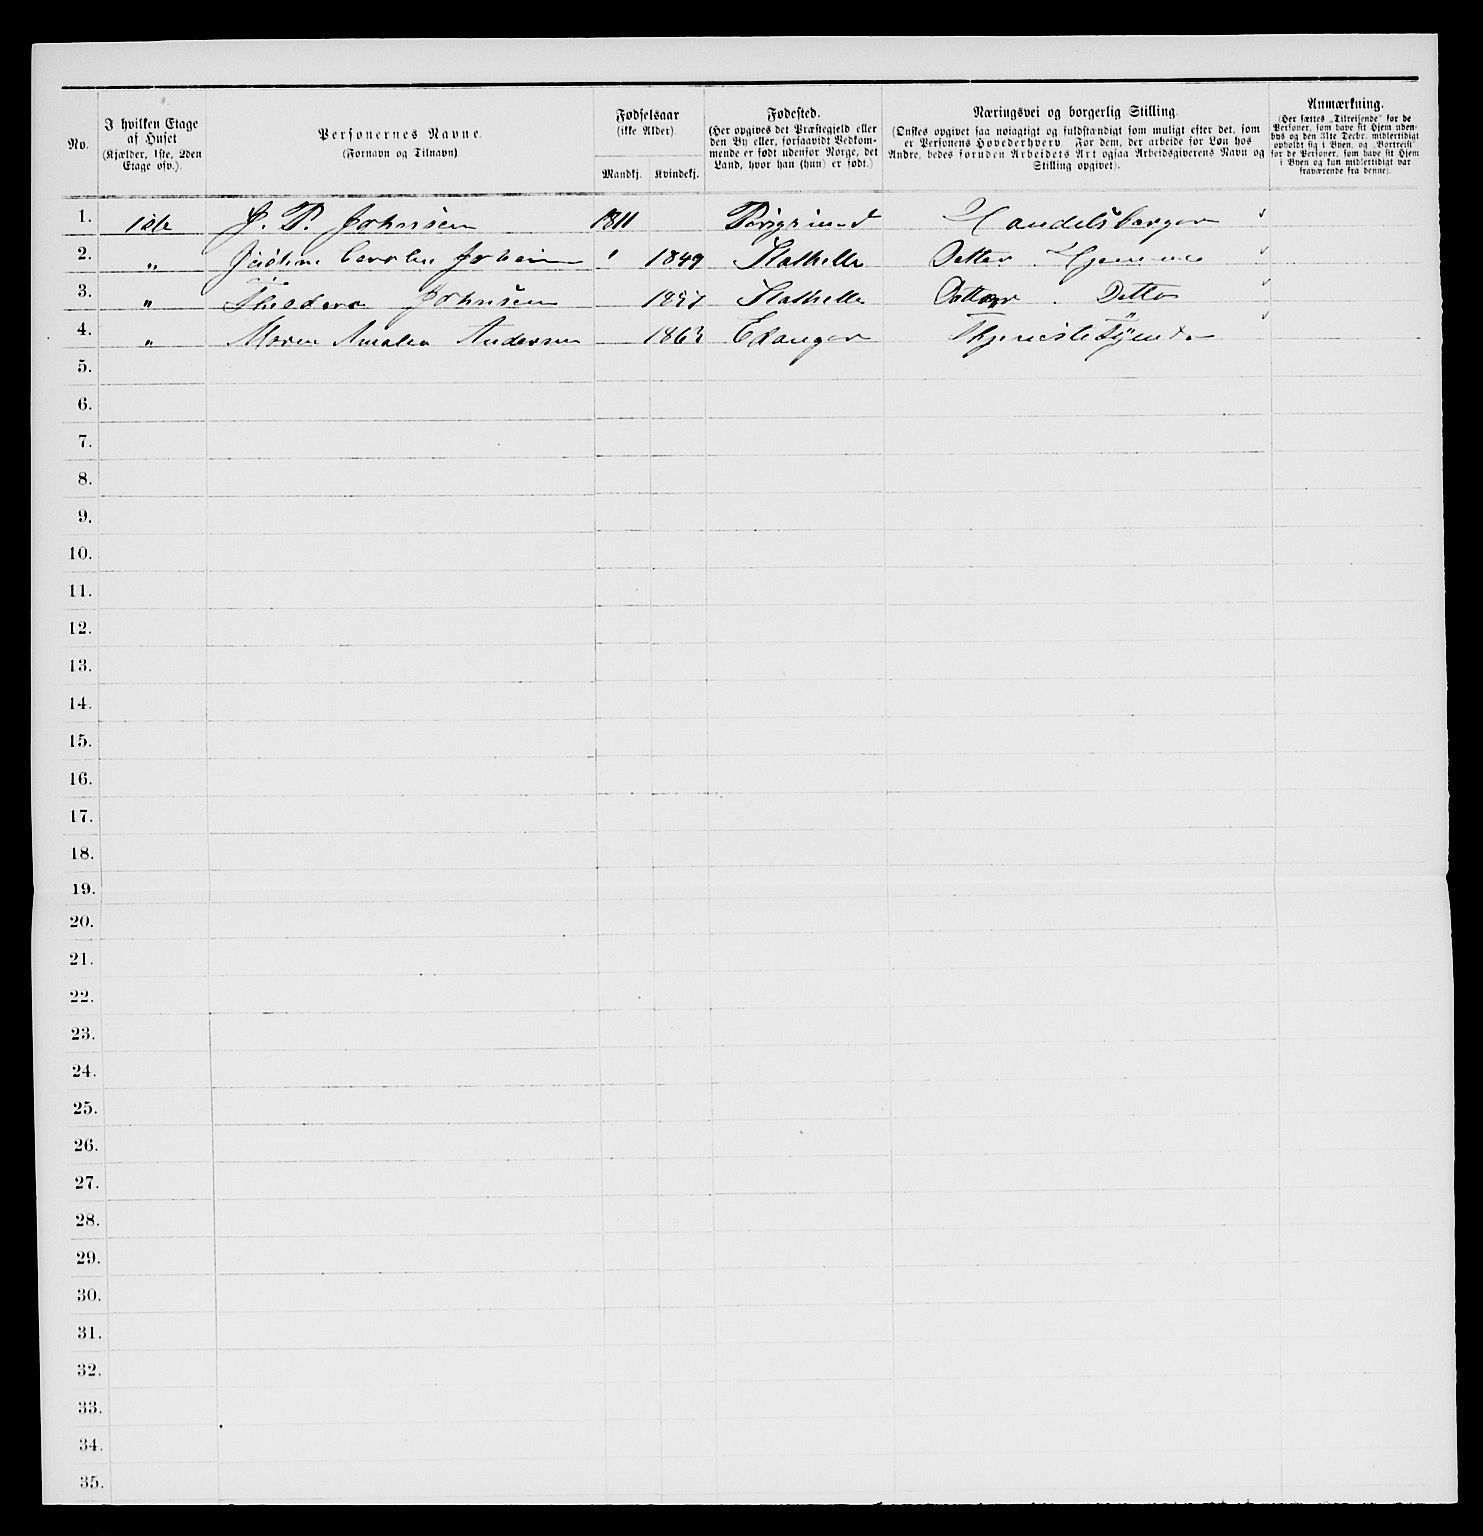 No.
I hvilken Etage af Huset
(Kjælder, 1ste, 2den Etage osv.).
Personernes Navne.
(Fornavn og Tilnavn)
Fødselsaar
(ikke Alder)
Mandkj. Kvindekj.
Fødested.
(Her opgives det Præstegjeld eller
den By eller, forsaavidt Vedkom-
mende er født udenfor Norge, det
Land, hvor han (hun) er født.)
Næringsvei og borgerlig Stilling.
(Ønskes opgivet saa nøiagtigt og fuldstændigt som muligt efter det, som
er Personens Hovederhverv. For dem, der arbeide for Løn hos
Andre, bedes foruden Arbeidets Art ogsaa Arbeidsgiverens Navn og
Stilling opgivet).
Anmærkning.
(Her sættes „Tilreisende“ for de
Personer, som have sit Hjem uden-
bys og den 31te Decbr. midlertidigt
opholdt sig i Byen, og „Bortreist“
for de Personer, som have sit Hjem
i Byen og kun midlertidigt var
fraværende fra denne).
1. 1ste J. P. Johnsen 1811 Porsgrund Handelsborger
2. " Johnsen " 1849 Stathelle Datter Hjemme
3. " Theodora Johnsen 1857 Stathelle Datter . Ditto
4. " Maren Amalia Andersen 1863 Eidanger Thjenistetyende
5.
6.
7.
8.
9.
10.
11.
12.
13.
14.
15.
16.
17.
18.
19.
20.
21.
22.
23.
24.
25.
26.
27.
28.
29.
30.
31.
32.
33.
34.
35.